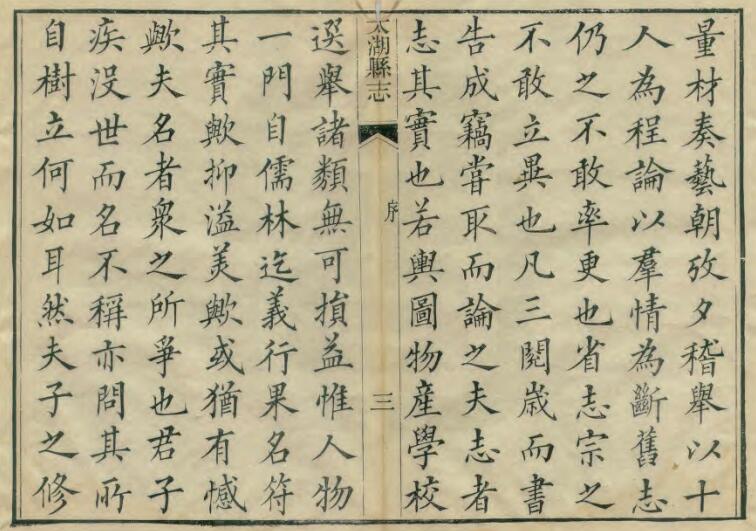 量材奏藝朝攷夕稽舉以十
人為程論以羣情為斷舊志
仍之不敢率更也省志宗之
不敢立異也凡三閱歲而書
告成竊嘗取而論之夫志者
志其實也若輿圖物產學校
太湖縣志
序
三
選舉諸類無可損益惟人物
一門自儒林迄義行果名符
其實歟抑溢美歟或猶有憾
歟夫名者衆之所爭也君子
疾没世而名不稱亦問其所
自樹立何如耳然夫子之修